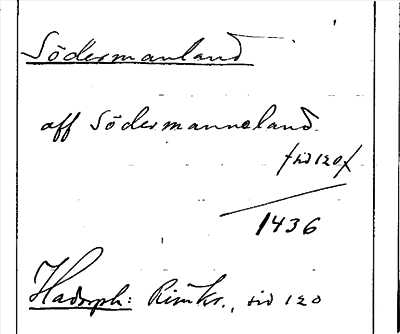 Södermanland
aff Södermanneland
/sid 120/
1436
Hadorph: Rimkr., sid 120